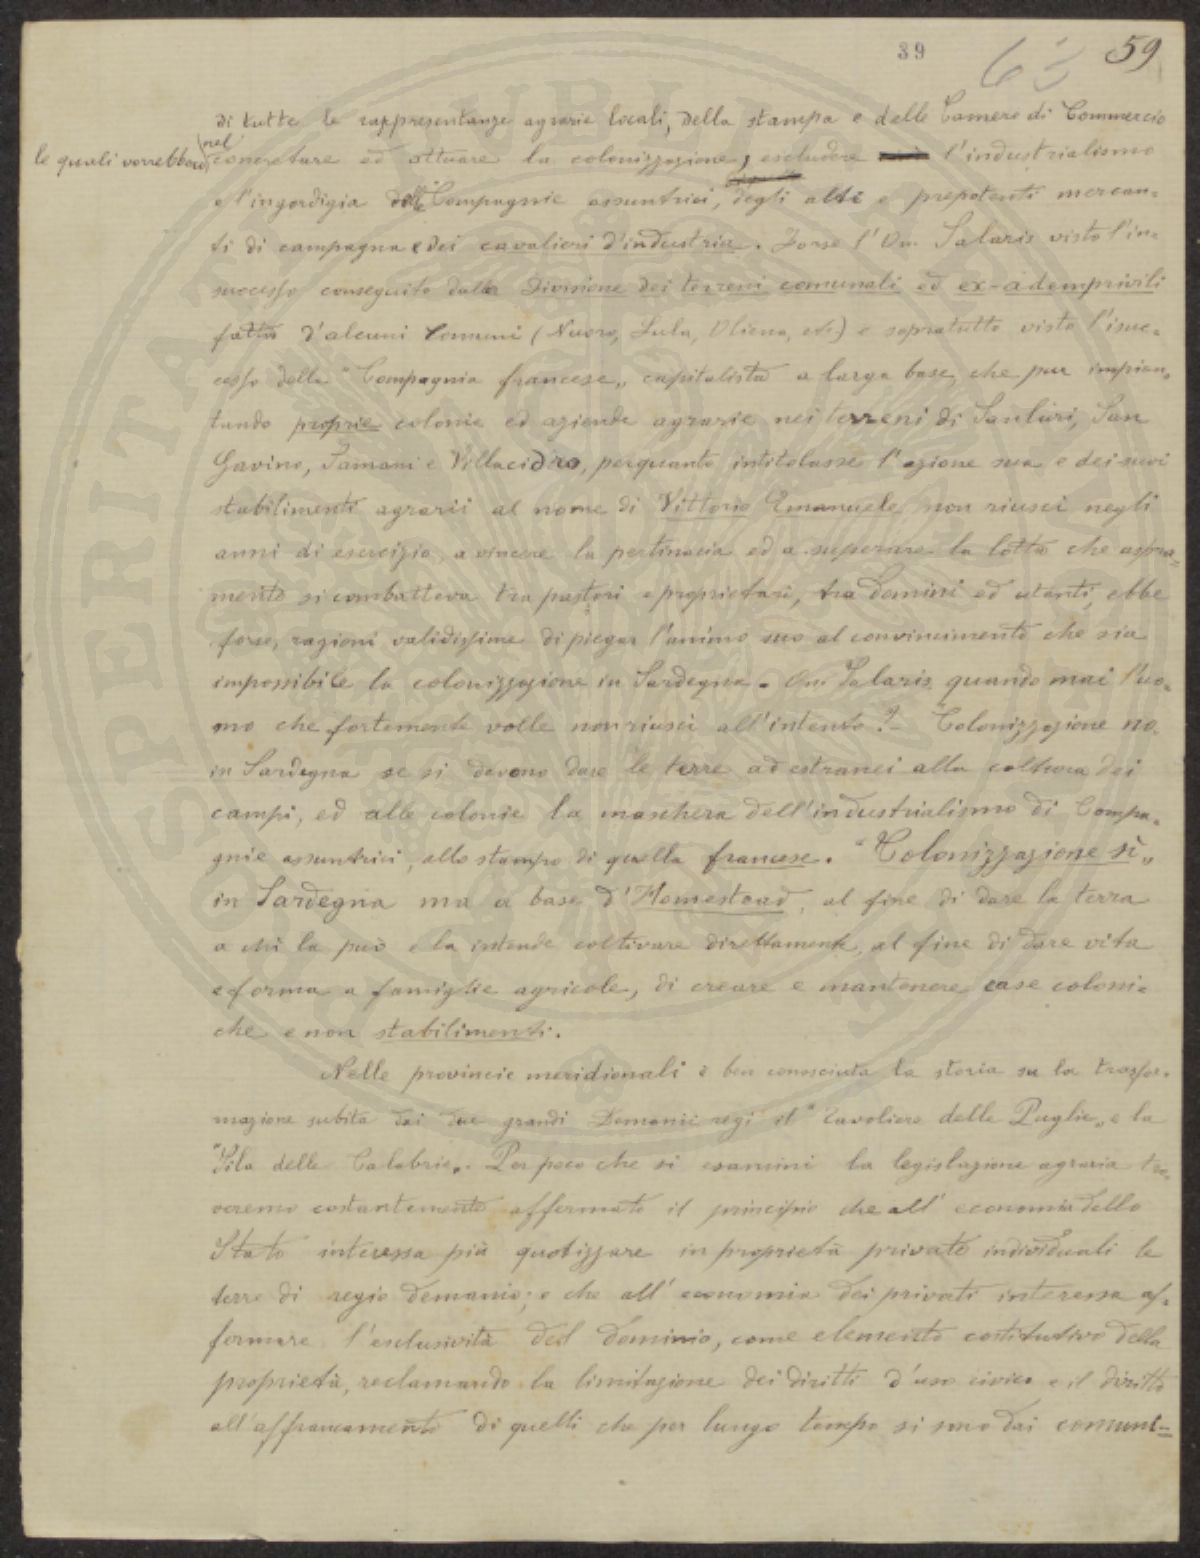 39 63 59
di tutte le rappresentanze agrarie locali, della stampa e delle Camere di Commercio
le quali vorrebbero, nel concretare ed attuare la colonizzazione, escludere l'industrialismo
e l'ingordigia delle Compagnie assuntrici, degli alti e prepotenti mercan-
ti di campagna e dei cavalieri d'industria. Forse l'On. Salaris visto l'in-
successo conseguito dalla divisione dei terreni comunali ed ex-ademprivili
fatta d'alcuni Comuni (Nuoro, Lula, Oliena, etc.) e sopratutto visto l'isuc-
cesso della "Compagnia francese„ capitalista a larga base, che pur impian-
tando proprie colonie ed aziende agrarie nei terreni di Sanluri, San
Gavino, Samassi e Villacidro, perquanto intitolasse l'azione sua e dei suoi
stabilimenti agrarii al nome di Vittorio Emanuele non riuscì negli
anni di esercizio a vincere la pertinacia ed a superare la lotta che aspra-
mente si combatteva tra pastori e proprietari, tra Domini ed utenti, ebbe
forse, ragioni validissime di piegar l'animo suo al convincimento che sia
impossibile la colonizzazione in Sardegna. On. Salaris quando mai l'uo-
mo che fortemente volle non riuscì all'intento?- Colonizzazione no.
in Sardegna se si devono dare le terre ad estranei alla coltura dei
campi, ed alle colonie la maschera dell'industrialismo di Compa-
gnie assuntrici, allo stampo di quella francese. "Colonizzazione si„
in Sardegna ma a base d'Homestead, al fine di dare la terra
a chi la può e la intende coltivare direttamente, al fine di dare vita
e forma a famiglie agricole, di creare e mantenere case coloni-
che e non stabilimenti.
Nelle provincie meridionali è ben conosciuta la storia su la trasfor-
mazione subita dai due grandi Demanii regi il "Tavoliere delle Puglie„ e la
"Sila delle Calabrie„. Per poco che si esamini la legislazione agraria tro-
veremo costantemente affermato il principio che all'economia dello
Stato interessa più quotizzare in proprietà private individuali le
terre di regio demanio; e che all'economia dei privati interessa af-
fermare l'esclusività del dominio, come elemento costitutivo della
proprietà, reclamando la limitazione dei diritti d'uso civico e il diritto
all'affrancamento di quelli che per lungo tempo si sono dai comuni-